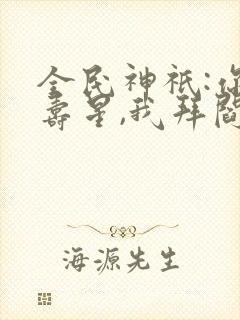 全民神祇:你
寿星,我拜阎
海源先生